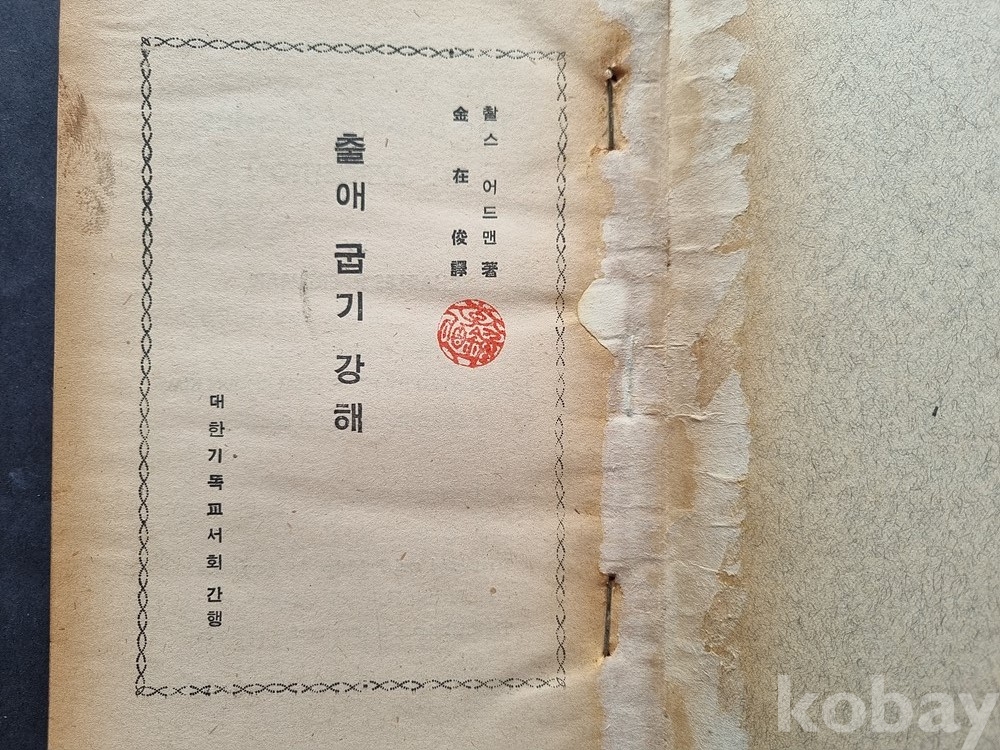 촬스 어드맨 著
金在俊 譯
출애굽기 강해
대한기독교서회 간행
kobay